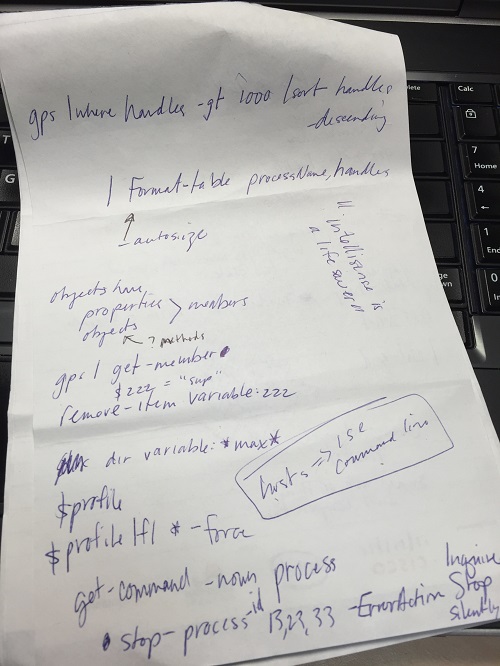 gps | where handles -gt 1000 | sort handles
-descending
| Format-table processName, handles
-autosize
11. intellisense is
a life saver!!
objects have
properties > members
objects
? methods
gps | get-member
$zzz = "sup"
remove-item variable:zzz
dir variable: *max*
hosts => ISE
command line
$profile
$profile |fl * -force
get-command -noun process
Inquire
stop-process -id 13,23,33 -ErrorAction Stop
silently
elete
Calc
7
Home
4
1
End
0
T
G